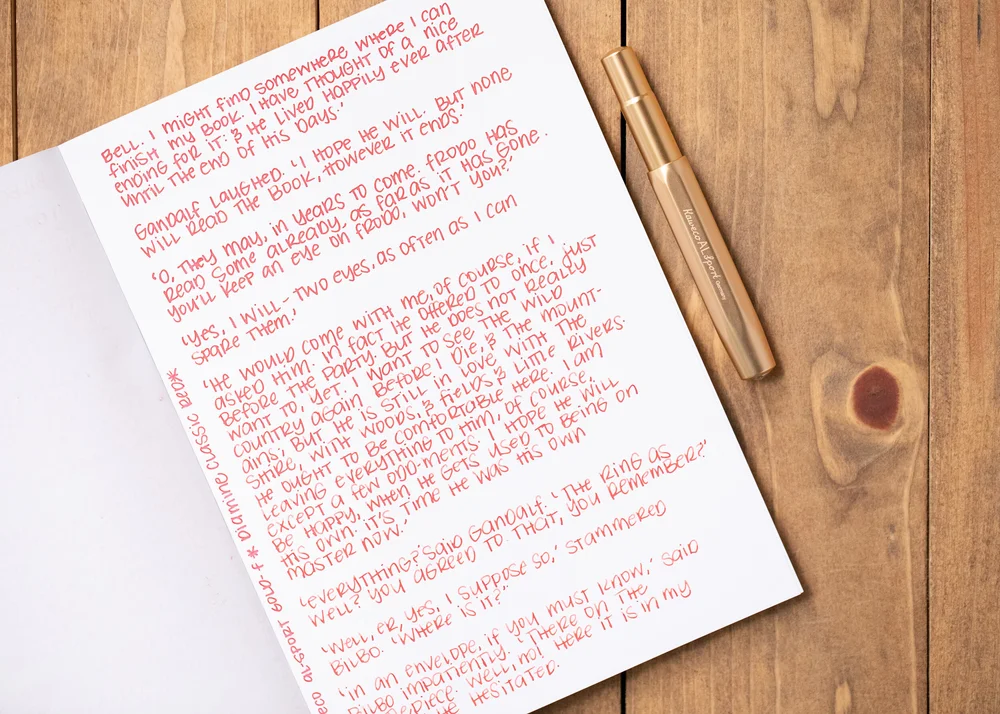 BELL. I MIGHT FIND SOMEWHERE WHERE I CAN
FINISH MY BOOK. I HAVE THOUGHT OF A NICE
ENDING FOR IT: & HE LIVED HAPPILY EVER AFTER
UNTIL THE END OF HIS DAYS.'
GANDALF LAUGHED. 'I HOPE HE WILL. BUT NONE
WILL READ THE BOOK, HOWEVER IT ENDS.'
'O, THEY MAY, IN YEARS TO COME. FRODO HAS
READ SOME ALREADY, AS FAR AS IT HAS GONE.
YOU'LL KEEP AN EYE ON FRODO, WON'T YOU?'
'YES, I WILL - TWO EYES, AS OFTEN AS I CAN
SPARE THEM.'
'HE WOULD COME WITH ME, OF COURSE, IF I
ASKED HIM. IN FACT HE OFFERED TO ONCE, JUST
BEFORE THE PARTY. BUT HE DOES NOT REALLY
WANT TO, YET. I WANT TO SEE THE WILD
COUNTRY AGAIN BEFORE I DIE, & THE MOUNT-
AINS; BUT HE IS STILL IN LOVE WITH THE
SHIRE, WITH WOODS, & FIELDS & LITTLE RIVERS.
HE OUGHT TO BE COMFORTABLE HERE. I AM
LEAVING EVERYTHING TO HIM, OF COURSE,
EXCEPT A FEW ODD-MENTS. I HOPE HE WILL
BE HAPPY, WHEN HE GETS USED TO BEING ON
HIS OWN. IT'S TIME HE WAS HIS OWN
MASTER NOW.'
'EVERYTHING?' SAID GANDALF. 'THE RING AS
WELL? YOU AGREED TO THAT, YOU REMEMBER?'
'WELL, ER, YES, I SUPPOSE SO,' STAMMERED
BILBO. 'WHERE IS IT?'
'IN AN ENVELOPE, IF YOU MUST KNOW,' SAID
BILBO IMPATIENTLY. 'THERE ON THE
WELL, NO! HERE IT IS IN MY
HESITATED.
AL SPORT GOLD-F * DIAMINE CLASSIC RED*
Kaweco AL Sport Germany